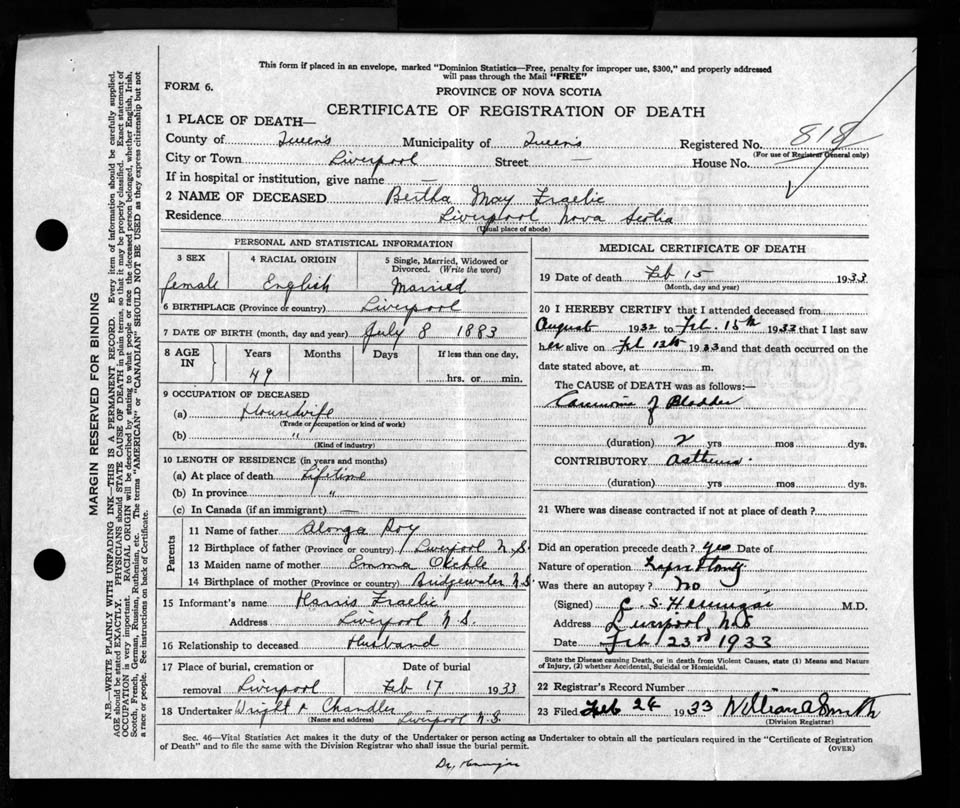 This form if placed in an envelope, marked "Dominion Statistics—Free, penalty for improper use, $300," and properly addressed
will pass through the Mail "FREE"
FORM 6.
PROVINCE OF NOVA SCOTIA
CERTIFICATE OF REGISTRATION OF DEATH
1 PLACE OF DEATH—
County of Queen's Municipality of Queen's Registered No. 818
(For use of Registrar General only)
City or Town Liverpool Street — House No.
If in hospital or institution, give name —
2 NAME OF DECEASED Bertha May Fraelic
Residence Liverpool Nova Scotia
(Usual place of abode)
PERSONAL AND STATISTICAL INFORMATION
3 SEX 4 RACIAL ORIGIN 5 Single, Married, Widowed or
Divorced. (Write the word)
female English Married
6 BIRTHPLACE (Province or country) Liverpool
7 DATE OF BIRTH (month, day and year) July 8 1883
8 AGE IN Years Months Days If less than one day,
49 hrs. or min.
9 OCCUPATION OF DECEASED
(a) Housewife
(Trade or occupation or kind of work)
(b) "
(Kind of industry)
10 LENGTH OF RESIDENCE (in years and months)
(a) At place of death Lifetime
(b) In province "
(c) In Canada (if an immigrant) —
Parents
11 Name of father Alonza Roy
12 Birthplace of father (Province or country) Liverpool N.S.
13 Maiden name of mother Emma
14 Birthplace of mother (Province or country) Bridgewater N.S.
15 Informant's name Harris Fraelic
Address Liverpool N.S.
16 Relationship to deceased Husband
17 Place of burial, cremation or Date of burial
removal Liverpool Feb 17 1933
18 Undertaker Wright & Chandler
(Name and address) Liverpool N.S.
MEDICAL CERTIFICATE OF DEATH
19 Date of death Feb 15 1933
(Month, day and year)
20 I HEREBY CERTIFY that I attended deceased from
August 1932 to Feb. 15th 1933 that I last saw
her alive on Feb 12th 1933 and that death occurred on the
date stated above, at m.
The CAUSE OF DEATH was as follows:—
Carcinoma of Bladder
(duration) 2 yrs mos dys.
CONTRIBUTORY
(duration) yrs mos dys.
21 Where was disease contracted if not at place of death?
Did an operation precede death? yes Date of
Nature of operation
Was there an autopsy? No
(Signed) M.D.
Address Liverpool, N.S.
Date Feb 23rd 1933
State the Disease causing Death, or in death from Violent Causes, state (1) Means and Nature
of Injury, (2) whether Accidental, Suicidal or Homicidal.
22 Registrar's Record Number
23 Filed Feb 24 1933 William A Smith
(Division Registrar)
Sec. 46—Vital Statistics Act makes it the duty of the Undertaker or person acting as Undertaker to obtain all the particulars required in the "Certificate of Registration
of Death" and to file the same with the Division Registrar who shall issue the burial permit.
(OVER)
Dr.
MARGIN RESERVED FOR BINDING
N.B.—WRITE PLAINLY WITH UNFADING INK—THIS IS A PERMANENT RECORD. Every item of information should be carefully supplied.
AGE should be stated EXACTLY. PHYSICIANS should STATE CAUSE OF DEATH in plain terms, so that it may be properly classified. Exact statement of
OCCUPATION is very important. RACIAL ORIGIN will be described by stating to what people or race the deceased person belonged, whether English, Irish,
Scotch, French, German, Russian, Ruthenian, etc. The terms "AMERICAN" or "CANADIAN" SHOULD NOT BE USED as they express citizenship but not
a race or people. See instructions on back of Certificate.